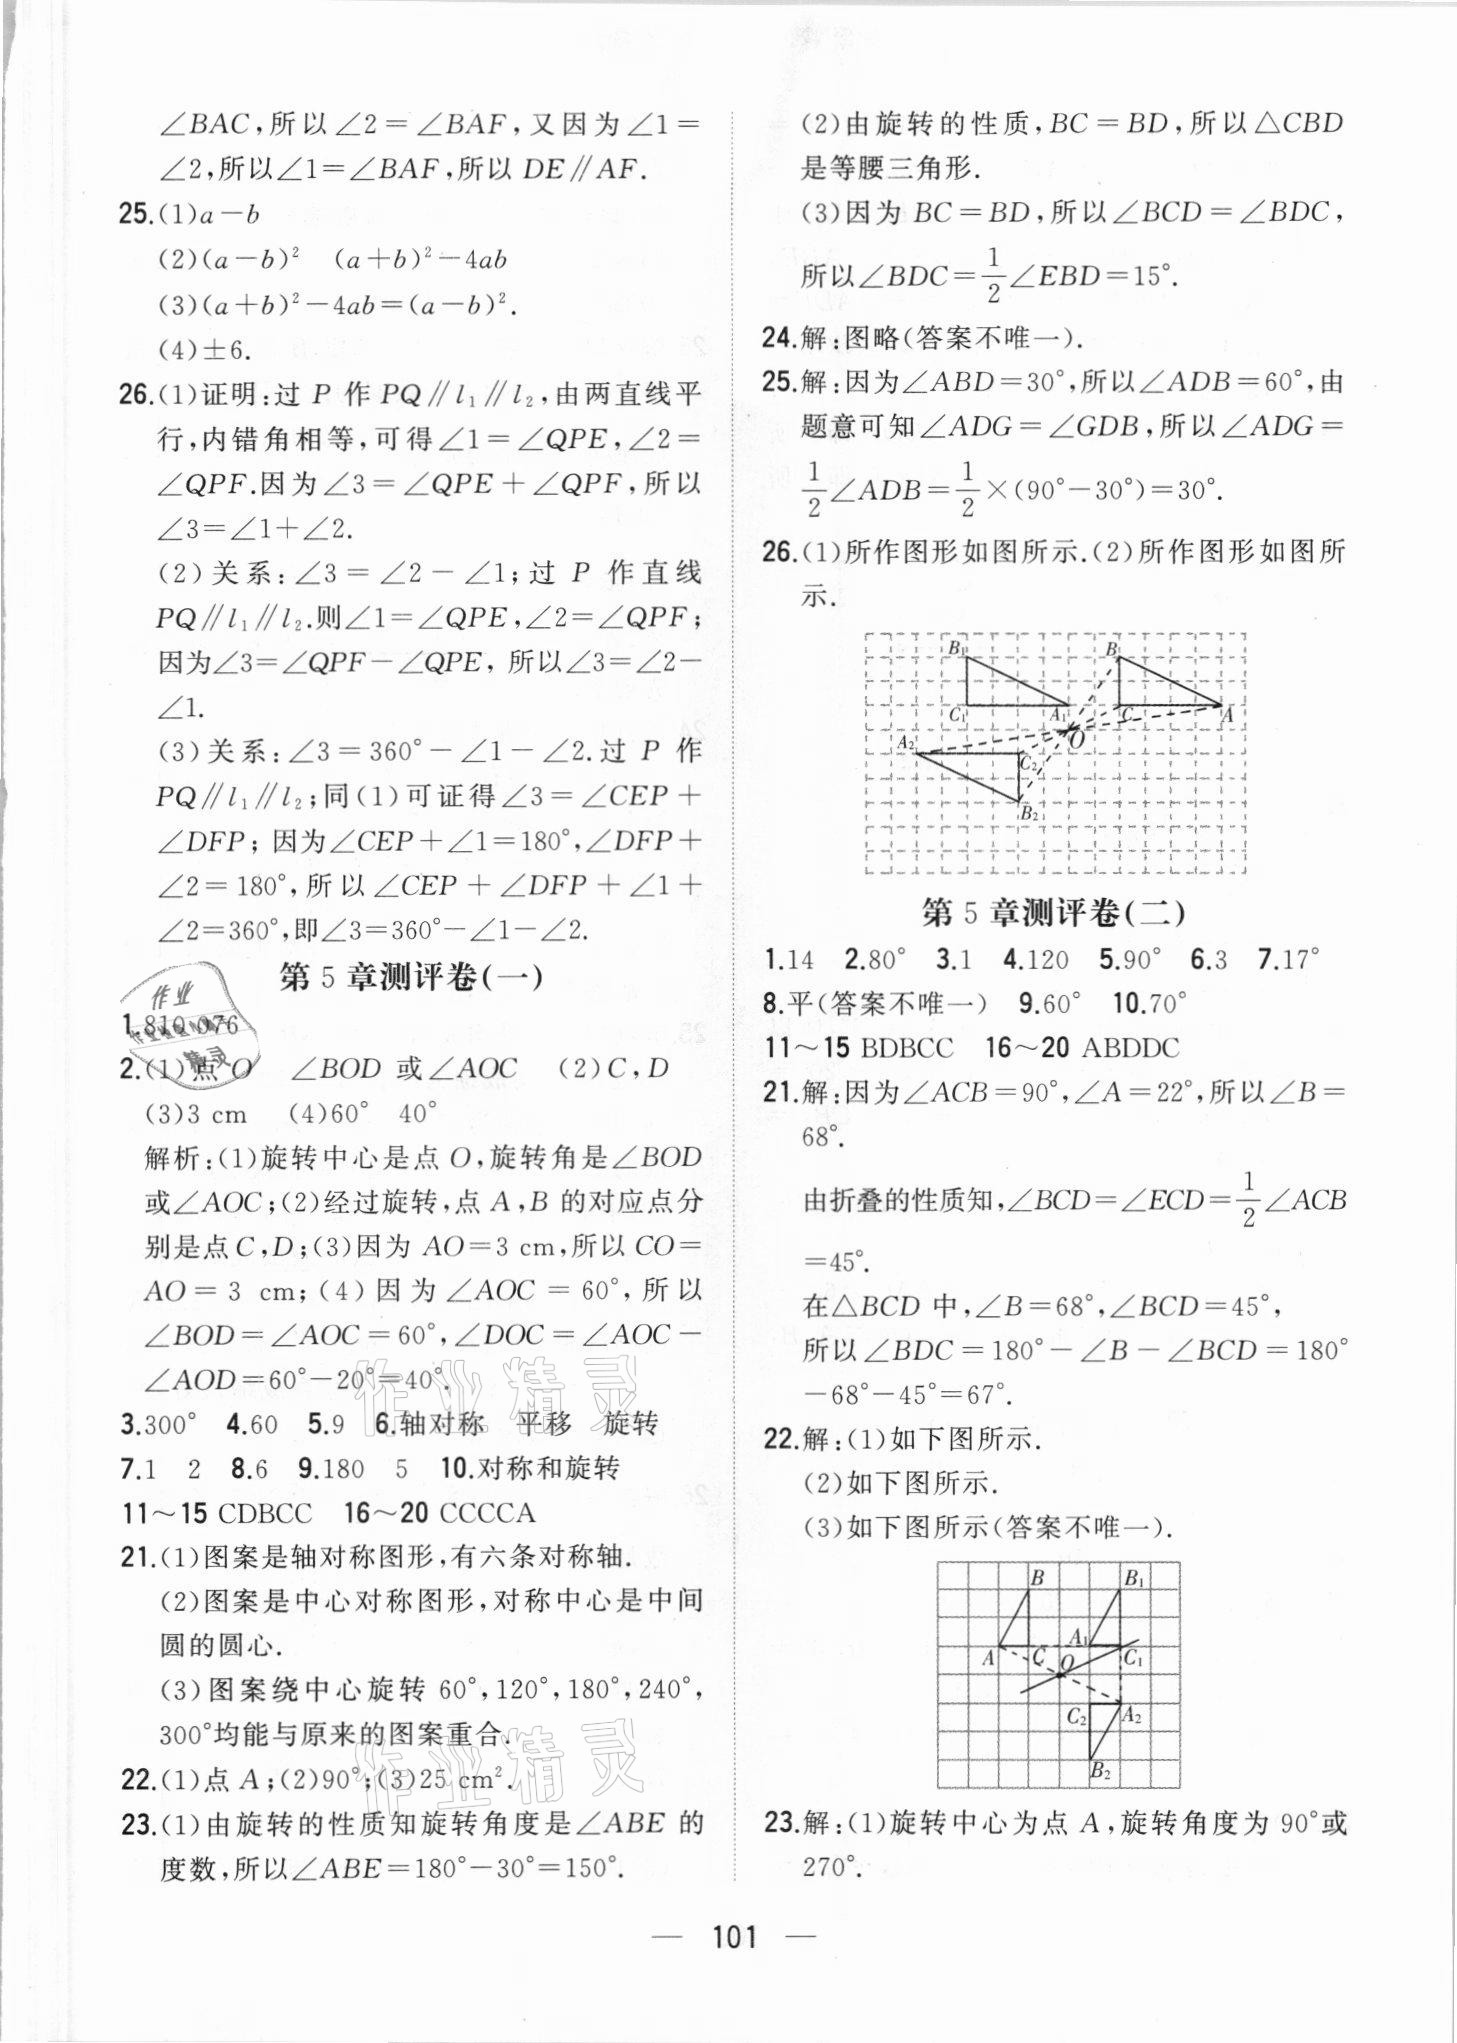 ∠BAC,所以∠2=∠BAF,又因为∠1=
∠2,所以∠1=∠BAF,所以 DE∥AF.
25.(1)a-b
(2)(a-b)² (a+b)²-4ab
(3)(a+b)²-4ab=(a-b)².
(4)±6.
26.(1)证明:过 P 作 PQ∥l₁∥l₂,由两直线平
行,内错角相等,可得∠1=∠QPE,∠2=
∠QPF.因为∠3=∠QPE+∠QPF,所以
∠3=∠1+∠2.
(2)关系:∠3=∠2-∠1;过 P 作直线
PQ∥l₁∥l₂.则∠1=∠QPE,∠2=∠QPF;
因为∠3=∠QPF-∠QPE,所以∠3=∠2-
∠1.
(3)关系:∠3=360°-∠1-∠2.过 P 作
PQ∥l₁∥l₂;同(1)可证得∠3=∠CEP+
∠DFP;因为∠CEP+∠1=180°,∠DFP+
∠2=180°,所以∠CEP+∠DFP+∠1+
∠2=360°,即∠3=360°-∠1-∠2.
第 5 章测评卷(一)
1.810 076
2.(1)点 O ∠BOD 或∠AOC (2)C,D
(3)3 cm (4)60° 40°
解析:(1)旋转中心是点 O,旋转角是∠BOD
或∠AOC;(2)经过旋转,点 A,B 的对应点分
别是点 C,D;(3)因为 AO=3 cm,所以 CO=
AO=3 cm;(4)因为∠AOC=60°,所以
∠BOD=∠AOC=60°,∠DOC=∠AOC-
∠AOD=60°-20°=40°.
3.300° 4.60 5.9 6.轴对称 平移 旋转
7.1 2 8.6 9.180 5 10.对称和旋转
11～15 CDBCC 16～20 CCCCA
21.(1)图案是轴对称图形,有六条对称轴.
(2)图案是中心对称图形,对称中心是中间
圆的圆心.
(3)图案绕中心旋转 60°,120°,180°,240°,
300°均能与原来的图案重合.
22.(1)点 A;(2)90°;(3)25 cm².
23.(1)由旋转的性质知旋转角度是∠ABE 的
度数,所以∠ABE=180°-30°=150°.
(2)由旋转的性质,BC=BD,所以△CBD
是等腰三角形.
(3)因为 BC=BD,所以∠BCD=∠BDC,
所以∠BDC=1/2∠EBD=15°.
24.解:图略(答案不唯一).
25.解:因为∠ABD=30°,所以∠ADB=60°,由
题意可知∠ADG=∠GDB,所以∠ADG=
1/2∠ADB=1/2×(90°-30°)=30°.
26.(1)所作图形如图所示.(2)所作图形如图所
示.
B₁ B
C₁ A₁ C A
A₂ O
C₂
B₂
第 5 章测评卷(二)
1.14 2.80° 3.1 4.120 5.90° 6.3 7.17°
8.平(答案不唯一) 9.60° 10.70°
11～15 BDBCC 16～20 ABDDC
21.解:因为∠ACB=90°,∠A=22°,所以∠B=
68°.
由折叠的性质知,∠BCD=∠ECD=1/2∠ACB
=45°.
在△BCD 中,∠B=68°,∠BCD=45°,
所以∠BDC=180°-∠B-∠BCD=180°
-68°-45°=67°.
22.解:(1)如下图所示.
(2)如下图所示.
(3)如下图所示(答案不唯一).
B B₁
A C O A₁ C₁
C₂ A₂
B₂
23.解:(1)旋转中心为点 A,旋转角度为 90°或
270°.
— 101 —
作业
精灵
作业精灵
作业精灵